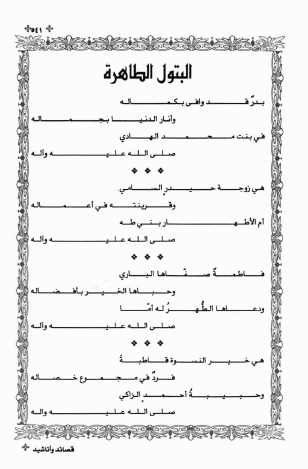 ٥٤١
البتول الطاهرة
بدرٌ قد وافى بكماله
وأنار الدنيا بجماله
في بنت محمد الهادي
صلى الله عليه وآله
هي زوجة حيدرٍ السامي
وقرينته في أعماله
أم الأطهار بني طه
صلى الله عليه وآله
فاطمةٌ صفّاها الباري
وحباها الخير بأفضاله
ودعاها الطُّهرُ له أمّا
صلى الله عليه وآله
هي خير النسوة قاطبةً
فردٌ في مجمع خصاله
وحبيبةُ أحمدٍ الزاكي
صلى الله عليه واله
قصائد وأناشيد